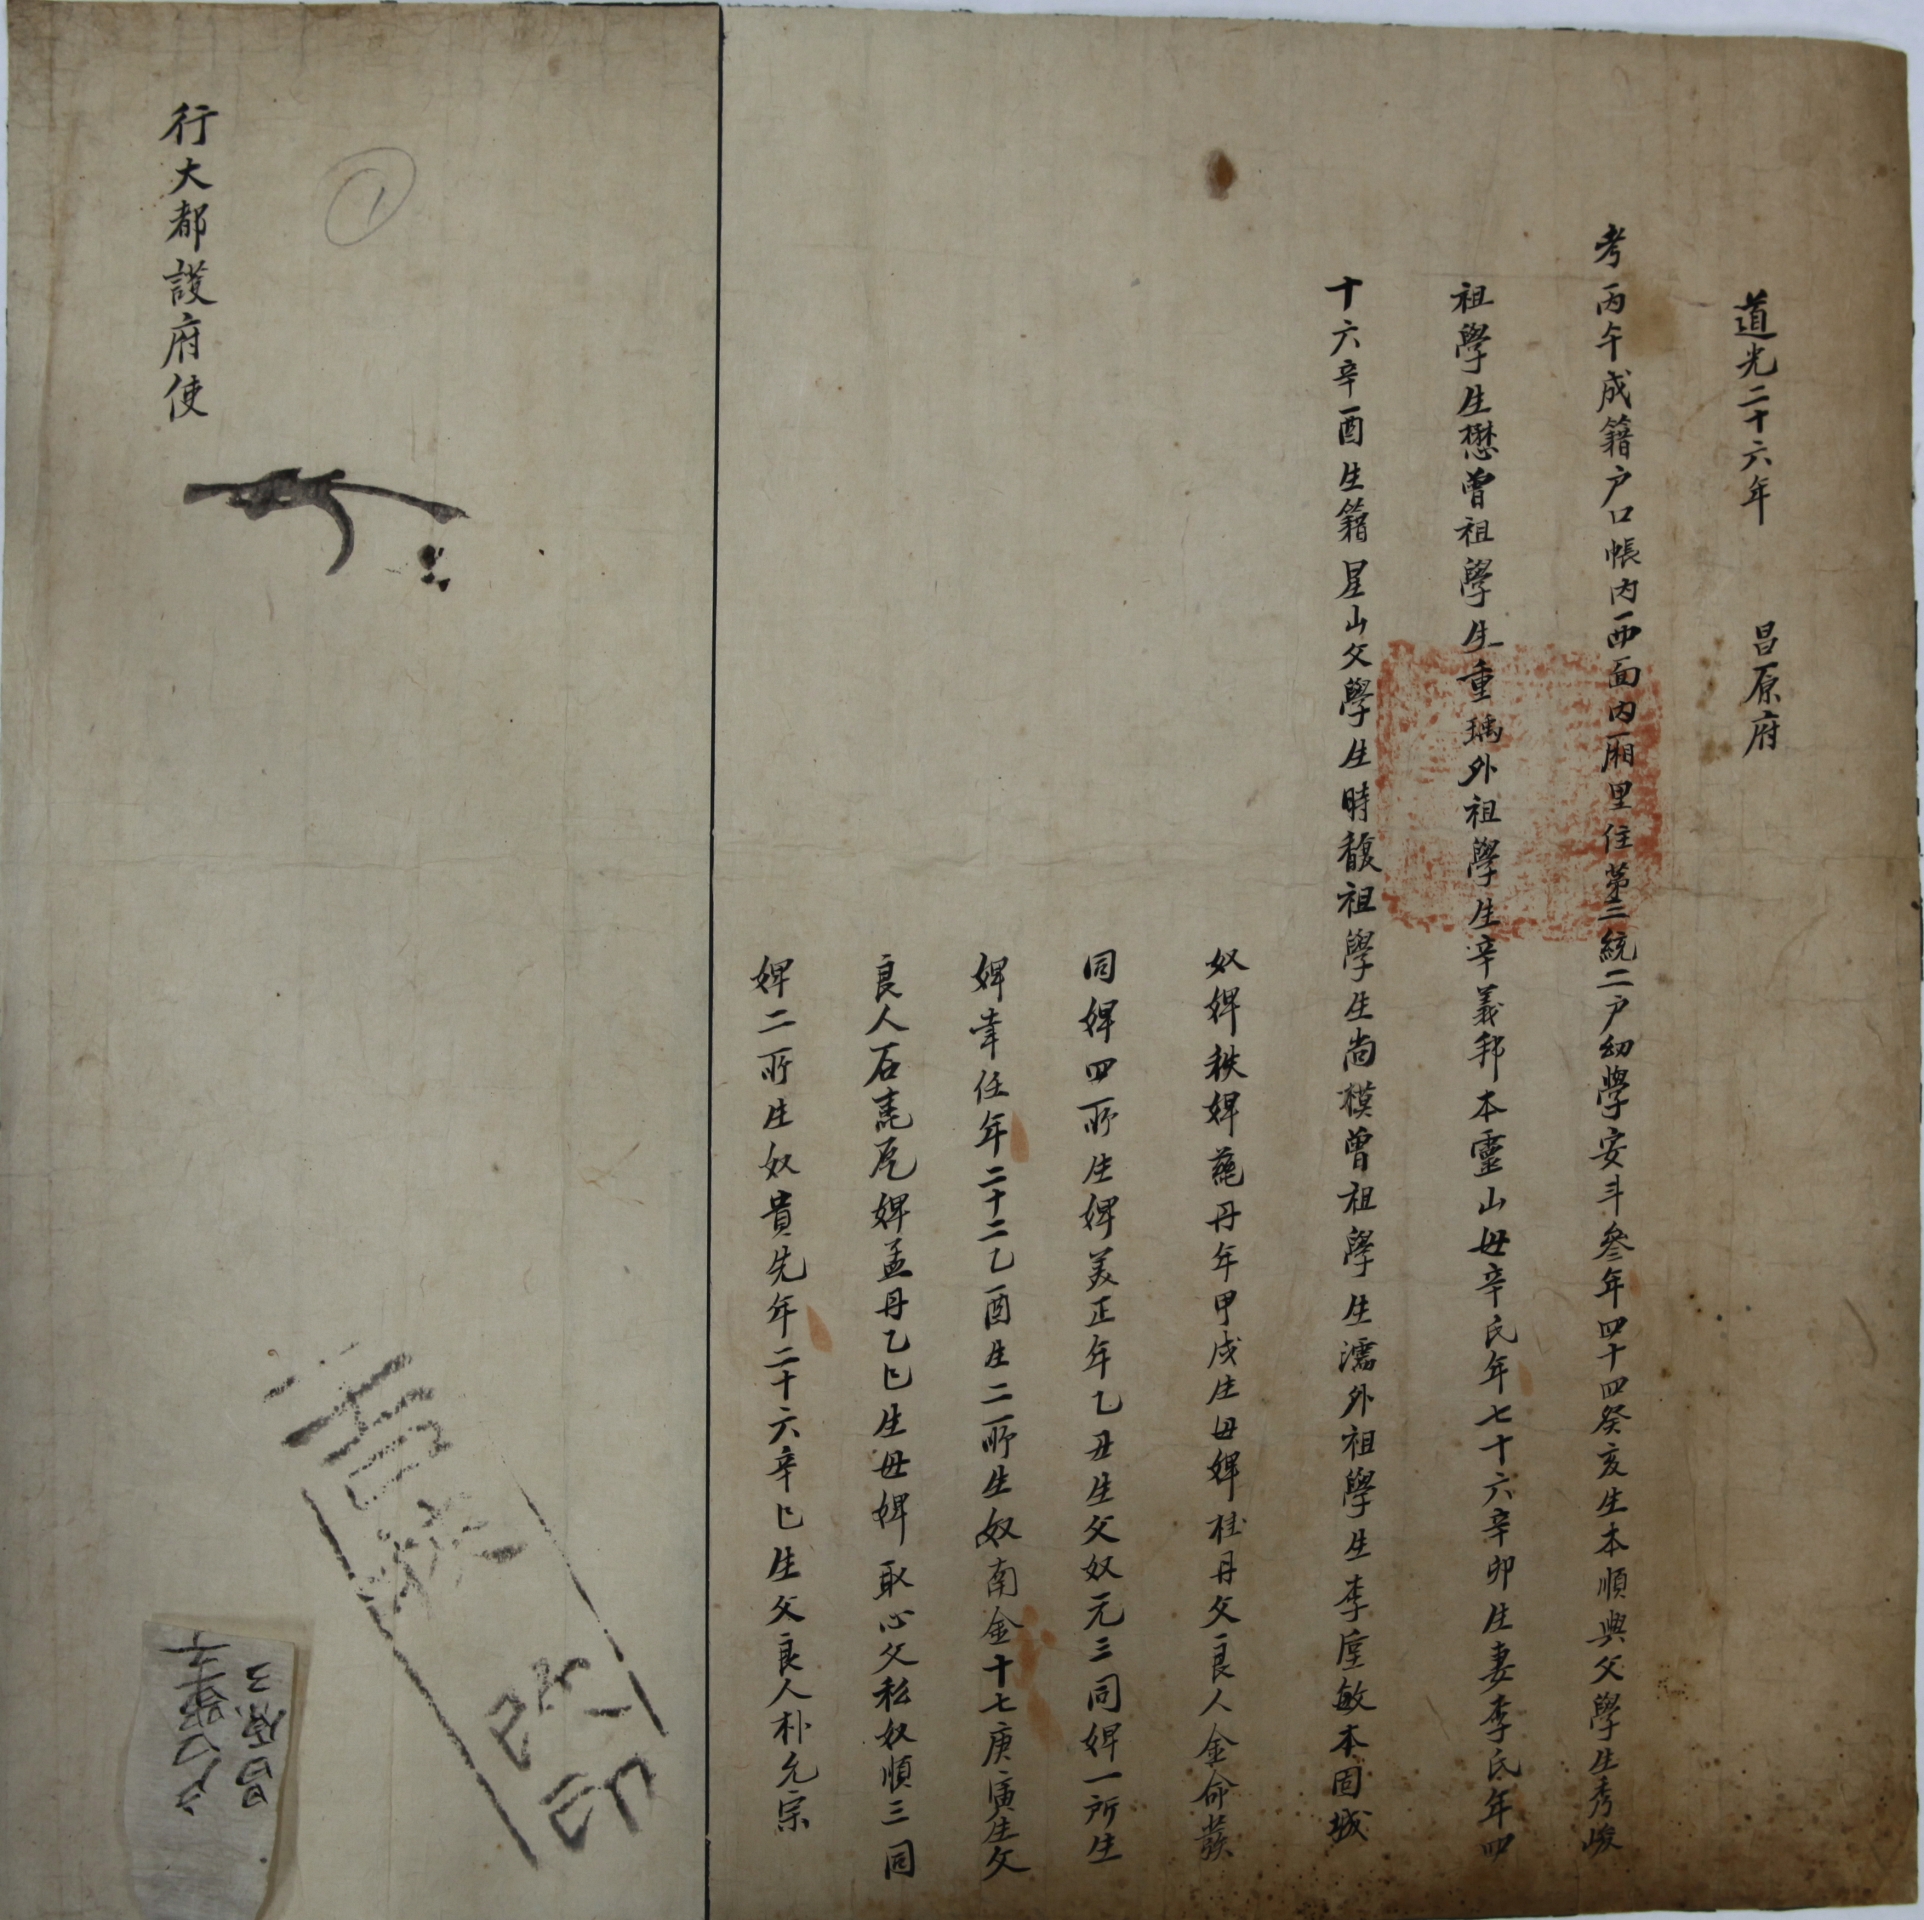 道光二十六年 昌原府
考丙午成籍户口帳內西面內廂里住第三統二户幼學安斗叅年四十四癸亥生本順興父學生秀峻
祖學生懋曾祖學生重瑀外祖學生辛義邦本靈山母辛氏年七十六辛卯生妻李氏年四
十六辛酉生籍星山父學生時馥祖學生尚模曾祖學生濡外祖學生李垕敏本固城
奴婢秩婢 丹年甲戌生母婢桂丹父良人金命發
同婢四所生婢美正年乙丑生父奴元三同婢一所生
婢 任年二十二乙酉生二所生奴南金十七庚寅生父
良人石 婢孟丹乙巳生母婢取心父私奴順三同
婢二所生奴貴先年二十六辛巳生父良人朴允宗
行大都護府使
①
昌原